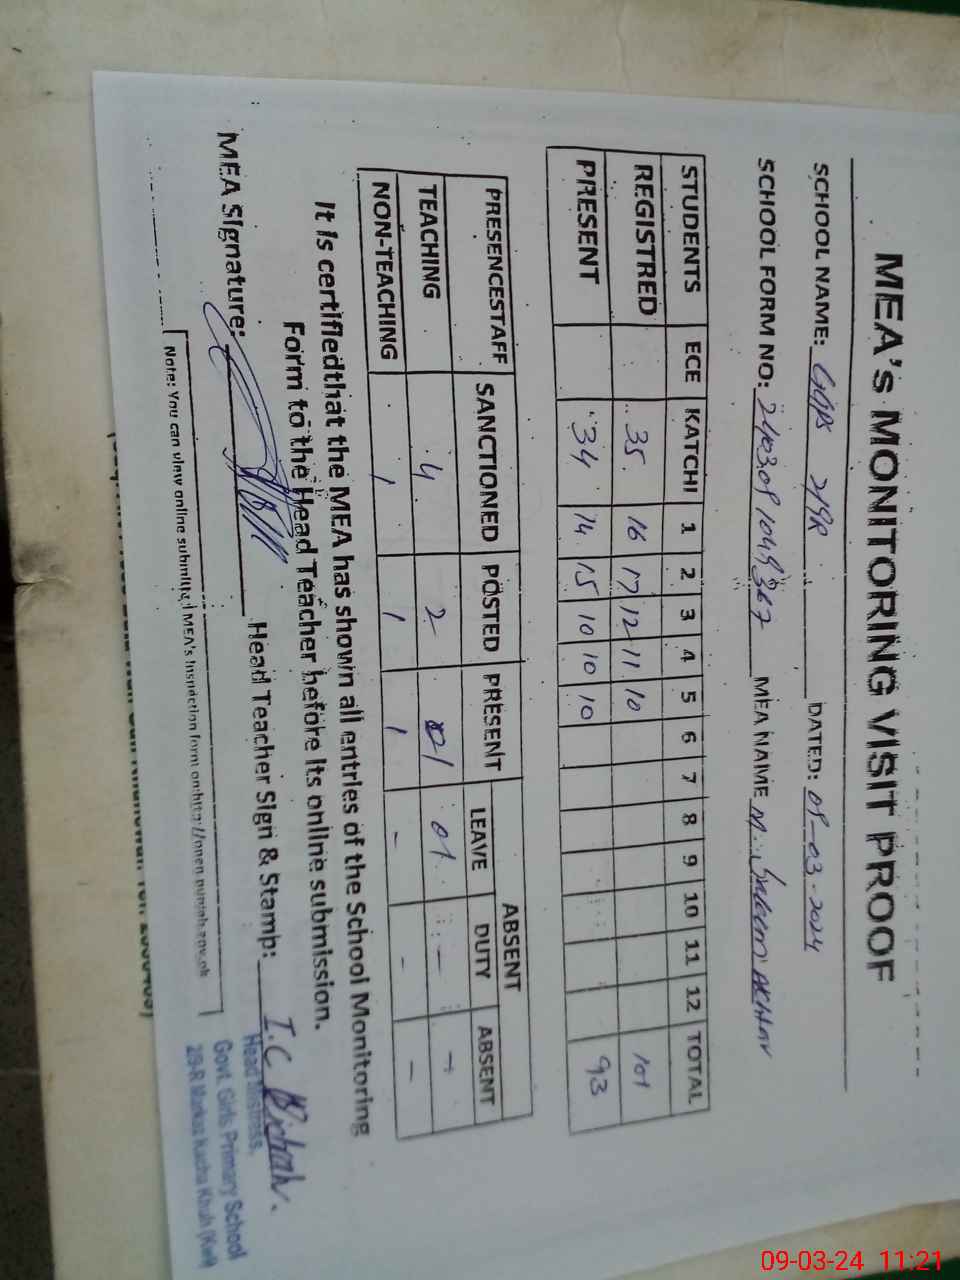 MEA's MONITORING VISIT PROOF
SCHOOL NAME: GGPS 2/9R DATED: 09-03-2024
SCHOOL FORM NO: MEA NAME M. Saleem Akhtar
STUDENTS ECE KATCHI 1 2 3 4 5 6 7 8 9 10 11 12 TOTAL
REGISTRED 35 16 17 12 11 10 101
PRESENT 34 14 15 10 10 10 93
PRESENCESTAFF SANCTIONED POSTED PRESENT ABSENT
LEAVE DUTY ABSENT
TEACHING 4 2 01 01 - -
NON-TEACHING 1 1 1 - - -
It is certifiedthat the MEA has shown all entries of the School Monitoring
Form to the Head Teacher before its online submission.
MEA Signature: Head Teacher Sign & Stamp: I.C
Head Mistress,
Govt. Girls Primary School
2/9-R Markaz Kacha Khuh (Kwl)
Note: You can view online submitted MEA's Inspection form on:http://open.punjab.gov.pk
09-03-24 11:21